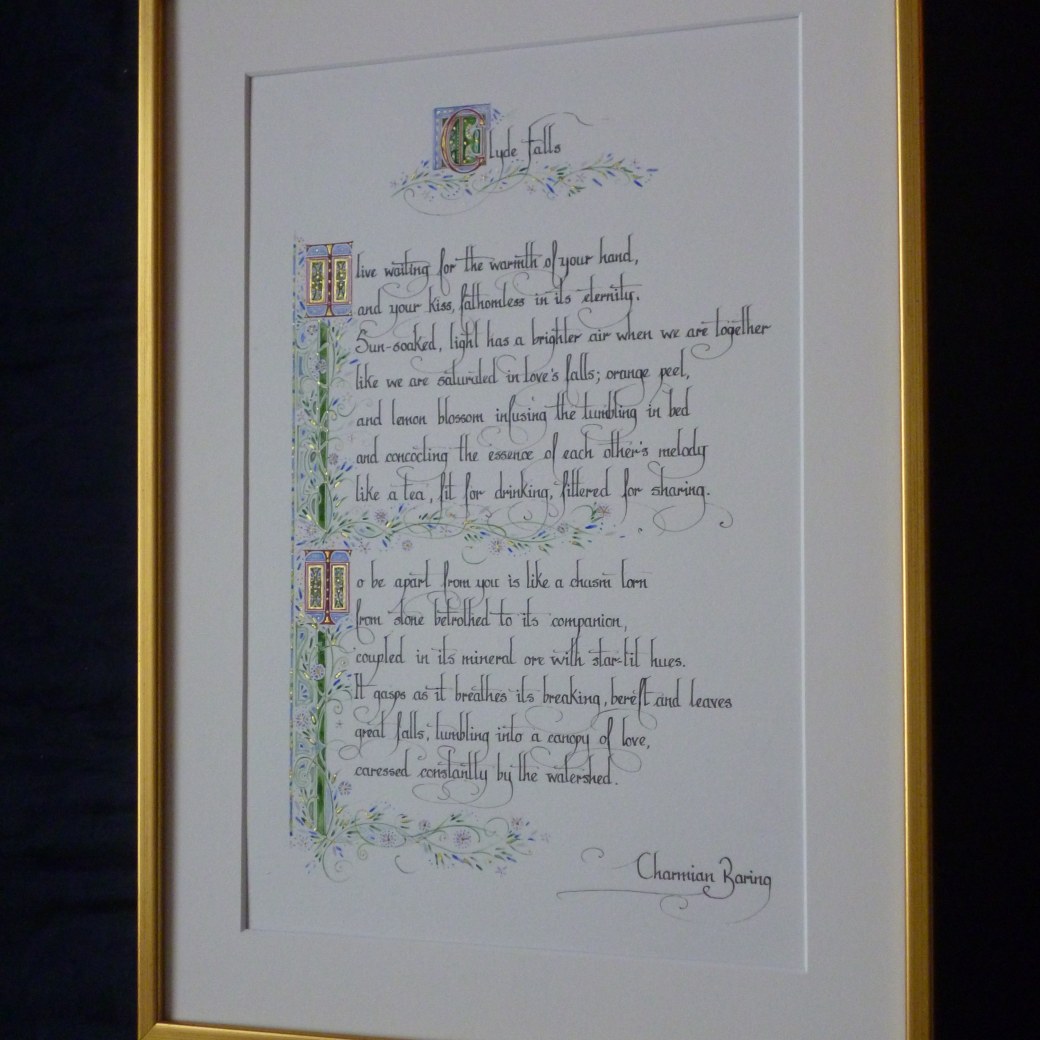 Clyde Falls
I live waiting for the warmth of your hand,
and your kiss, fathomless in its eternity.
Sun-soaked, light has a brighter air when we are together
like we are saturated in love's falls; orange peel,
and lemon blossom infusing the tumbling in bed
and concocting the essence of each other's melody
like a tea, fit for drinking, filtered for sharing.
To be apart from you is like a chasm torn
from stone betrothed to its companion,
coupled in its mineral ore with star-lit hues.
It gasps as it breathes its breaking, bereft and leaves
great falls; tumbling into a canopy of love,
caressed constantly by the watershed.
Charmian Baring